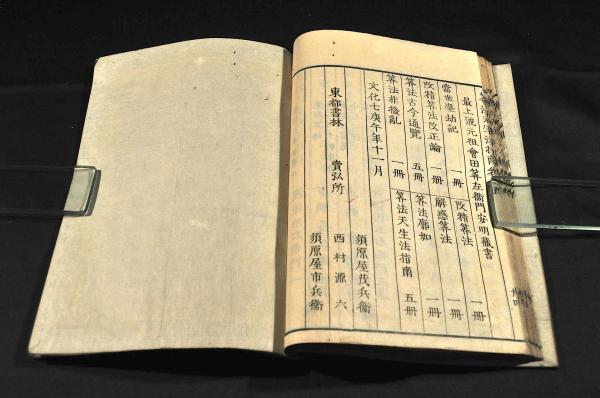 最上流元祖會田算左衞門安明藏書
當世塵劫記 一冊
改精算法 一冊
改精算法改正論 一冊
解惑算法 一冊
算法古今通覽 五冊
算法廓如 一冊
算法非撥亂 一冊
算法天生法指南 五冊
文化七庚午年十一月
東都書林 賣弘所
須原屋茂兵衞
西村源六
須原屋市兵衞